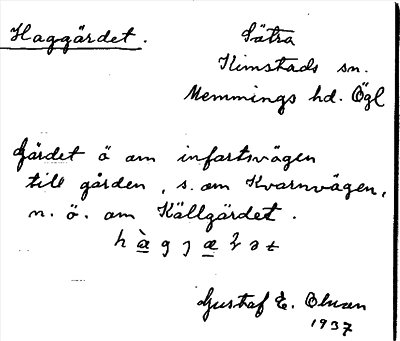 Haggärdet.
Sätra
Kimstads sn.
Memmings hd. Ögl
Gärdet ö om infartsvägen
till gården, s. om Kvarnvägen,
n. ö. om Källgärdet.
Gustaf E.
1937